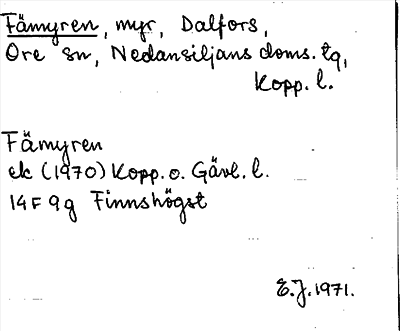 Fämyren, myr, Dalfors,
Ore sn, Nedansiljans doms. tg,
Kopp. l.
Fämyren
ek (1970) Kopp. o. Gävl. l.
14F 9g Finnshögst
E.J. 1971.